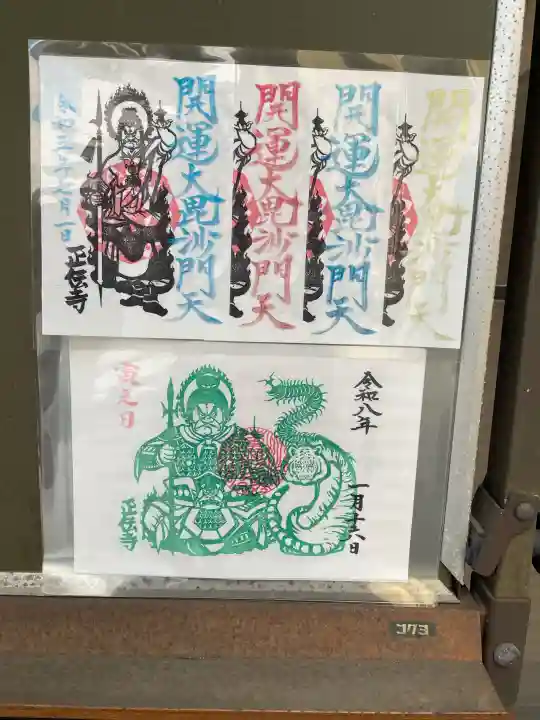 開運大毘沙門天
開運大毘沙門天
開運大毘沙門天
開運大毘沙門天
正伝寺
寅之日
令和八年
一月十六日
正伝寺
コクヨ